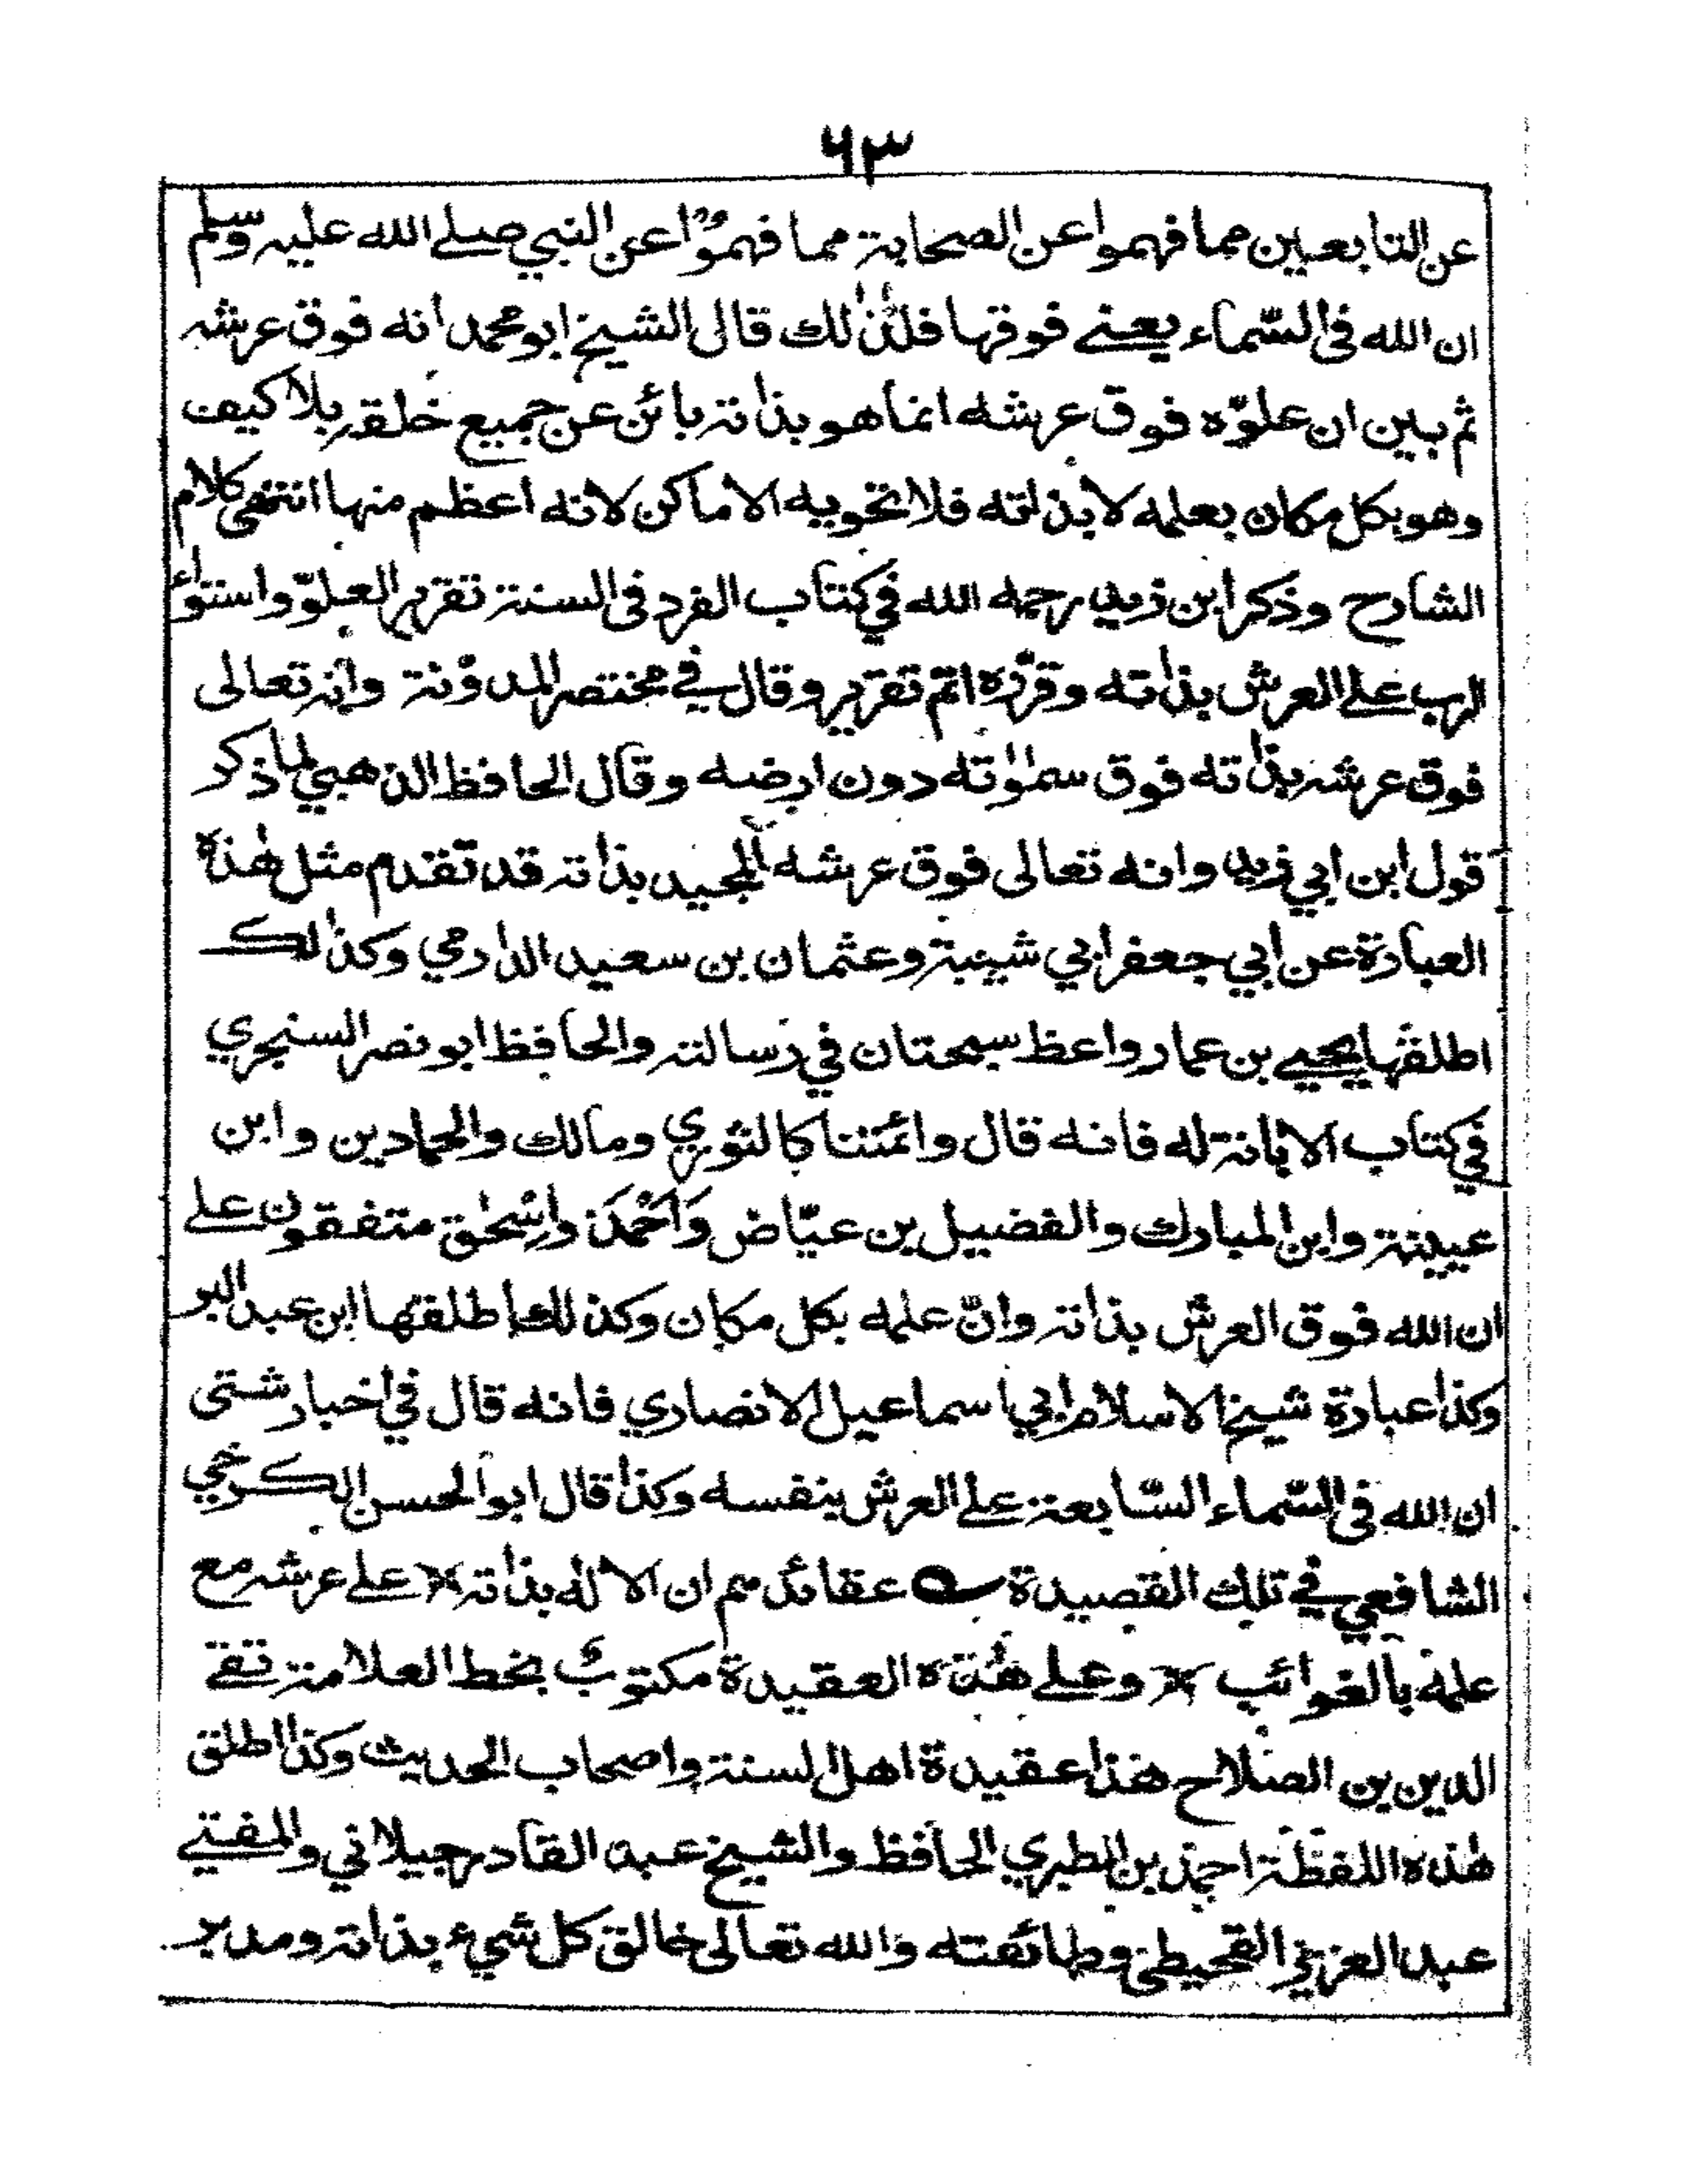 ٦٣
عن التابعين مما فهموا عن الصحابة مما فهموا عن النبي صلے الله عليه وسلم
ان الله فى السّماء يعنے فوقها فلذٰلك قال الشيخ ابو محمد انه فوق عرشه
ثم بين ان علوّه فوق عرشه انما هو بذاته بائن عن جميع خلقه بلا كيف
وهو بكل مكان بعلمه لا بذاته فلا تحويه الاماكن لانه اعظم منها انتهى كلام
الشارح وذكر ابن زيد رحمه الله في كتاب الفرد فى السنة تقرير العلوّ واستواء
الرب علے العرش بذاته وقرّره اتم تقرير وقال في مختصر المدوّنة وانه تعالى
فوق عرشه بذاته فوق سمٰوٰته دون ارضه وقال الحافظ الذهبي لما ذكر
قول ابن ابي زيد وانه تعالى فوق عرشه المجيد بذاته قد تقدم مثل هٰذه
العبارة عن ابي جعفر ابي شيبة وعثمان بن سعيد الدارمي وكذٰلك
اطلقها يحيے بن عمار واعظ سجستان في رسالته والحافظ ابو نصر السنجري
في كتاب الابانة له فانه قال وائمتنا كالثوري ومالك والحمادين وابن
عيينة وابن المبارك والفضيل بن عيّاض وَاَحْمَدَ واِسْحٰق متفقون علے
ان الله فوق العرش بذاته وانّ علمه بكل مكان وكذلك اطلقها ابن عبد البر
وكذا عبارة شيخ الاسلام ابي اسماعيل الانصاري فانه قال في اخبار شتى
ان الله فى السّماء السّابعة علے العرش بنفسه وكذا قال ابو الحسن الكرخي
الشافعي في تلك القصيدة ؎ عقائدهم ان الا له بذاته ٭ علے عرشه مع
علمه بالغوائب ٭ وعلے هٰذه العقيدة مكتوبٌ بخط العلامة تقے
الدين بن الصلاح هٰذا عقيدة اهل السنة واصحاب الحديث وكذا اطلق
هٰذه اللفظة احمد بن الطبري الحافظ والشيخ عبد القادر جيلاني والمفتے
عبد العزيز القحيطى وطائفته والله تعالى خالق كل شيء بذاته ومدبر